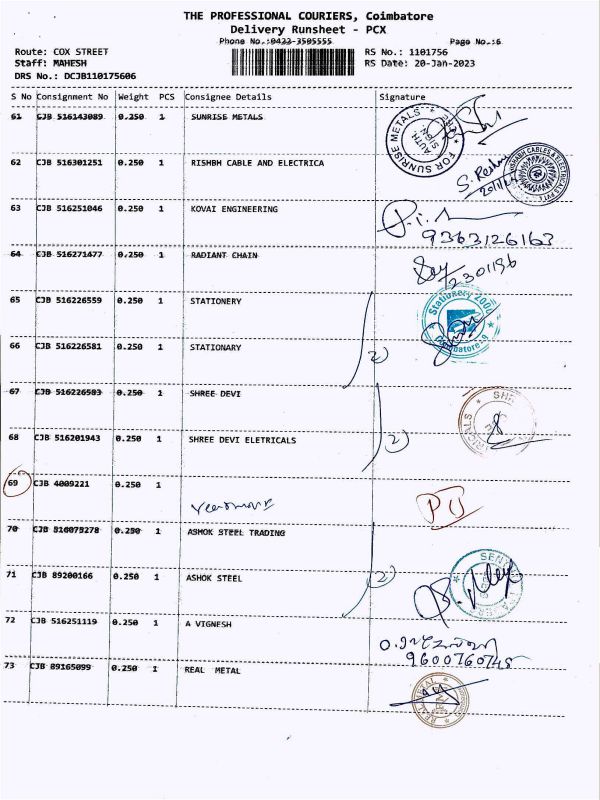 THE PROFESSIONAL COURIERS, Coimbatore
Delivery Runsheet - PCX
Phone No.:0422-3505555 Page No.:6
Route: COX STREET RS No.: 1101756
Staff: MAHESH RS Date: 20-Jan-2023
DRS No.: DCJB110175606
S No Consignment No Weight PCS Consignee Details Signature
61 CJB 516143089 0.250 1 SUNRISE METALS
FOR SUNRISE METALS AUTH. SIGN.
62 CJB 516301251 0.250 1 RISHBH CABLE AND ELECTRICA
63 CJB 516251046 0.250 1 KOVAI ENGINEERING
9363126163
64 CJB 516271477 0.250 1 RADIANT CHAIN
2301196
65 CJB 516226559 0.250 1 STATIONERY
Stationery 2000
66 CJB 516226581 0.250 1 STATIONARY
2)
67 CJB 516226583 0.250 1 SHREE DEVI
68 CJB 516201943 0.250 1 SHREE DEVI ELETRICALS
2)
69 CJB 4009221 0.250 1
70 CJB 516075278 0.250 1 ASHOK STEEL TRADING
71 CJB 89200166 0.250 1 ASHOK STEEL
2)
72 CJB 516251119 0.250 1 A VIGNESH
9600760745
73 CJB 89165099 0.250 1 REAL METAL
REAL METAL